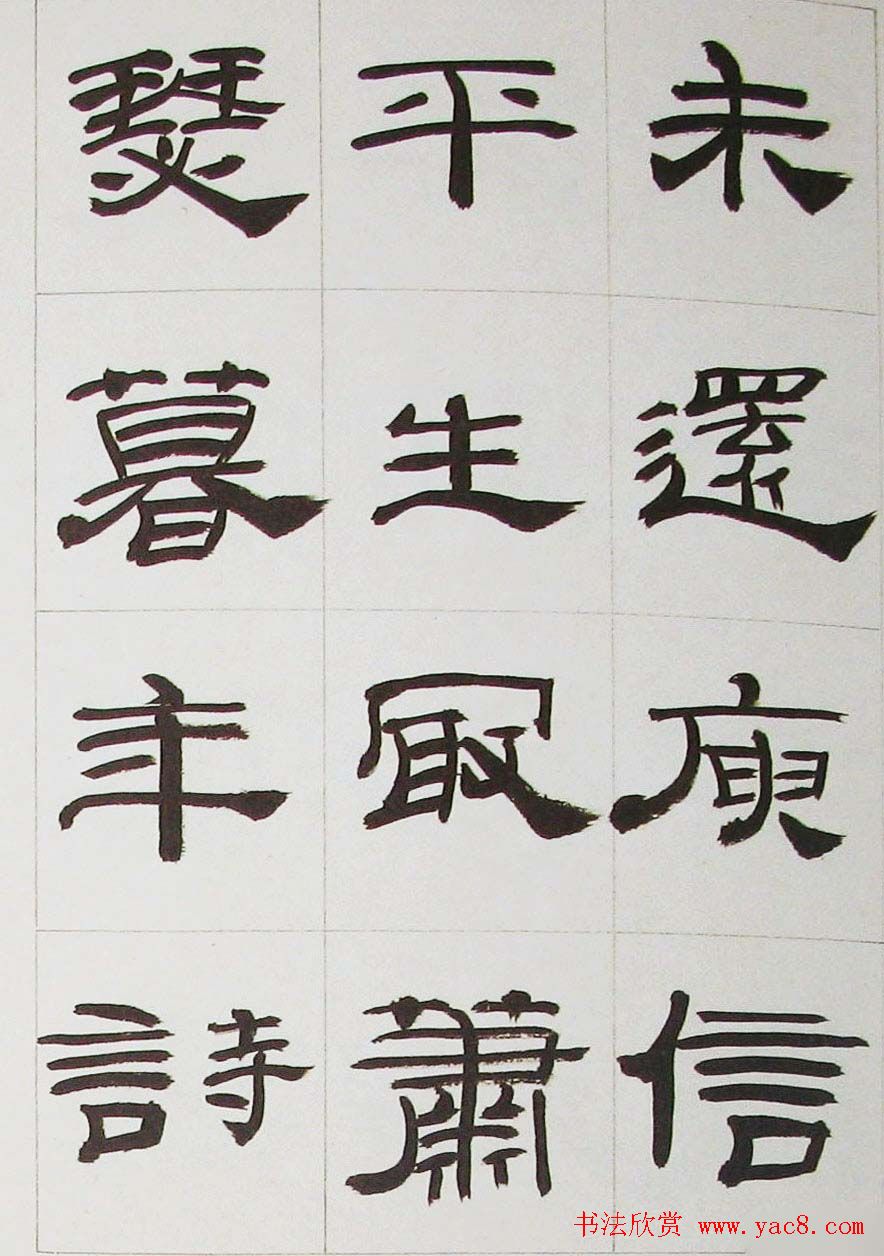 未還庾信
平生冣蕭
瑟暮年詩
书法欣赏 www.yac8.com